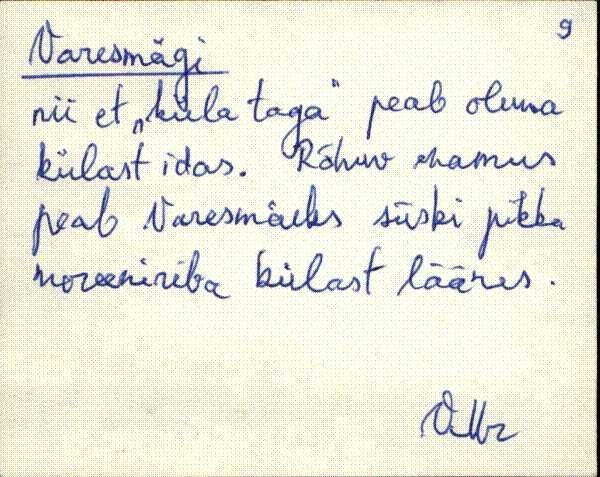 9
Varesmägi
nii et „küla taga" peab olema
külast idas. Rõhuv enamus
peab Varesmäeks siiski pikka
moreeniriba külast läänes.